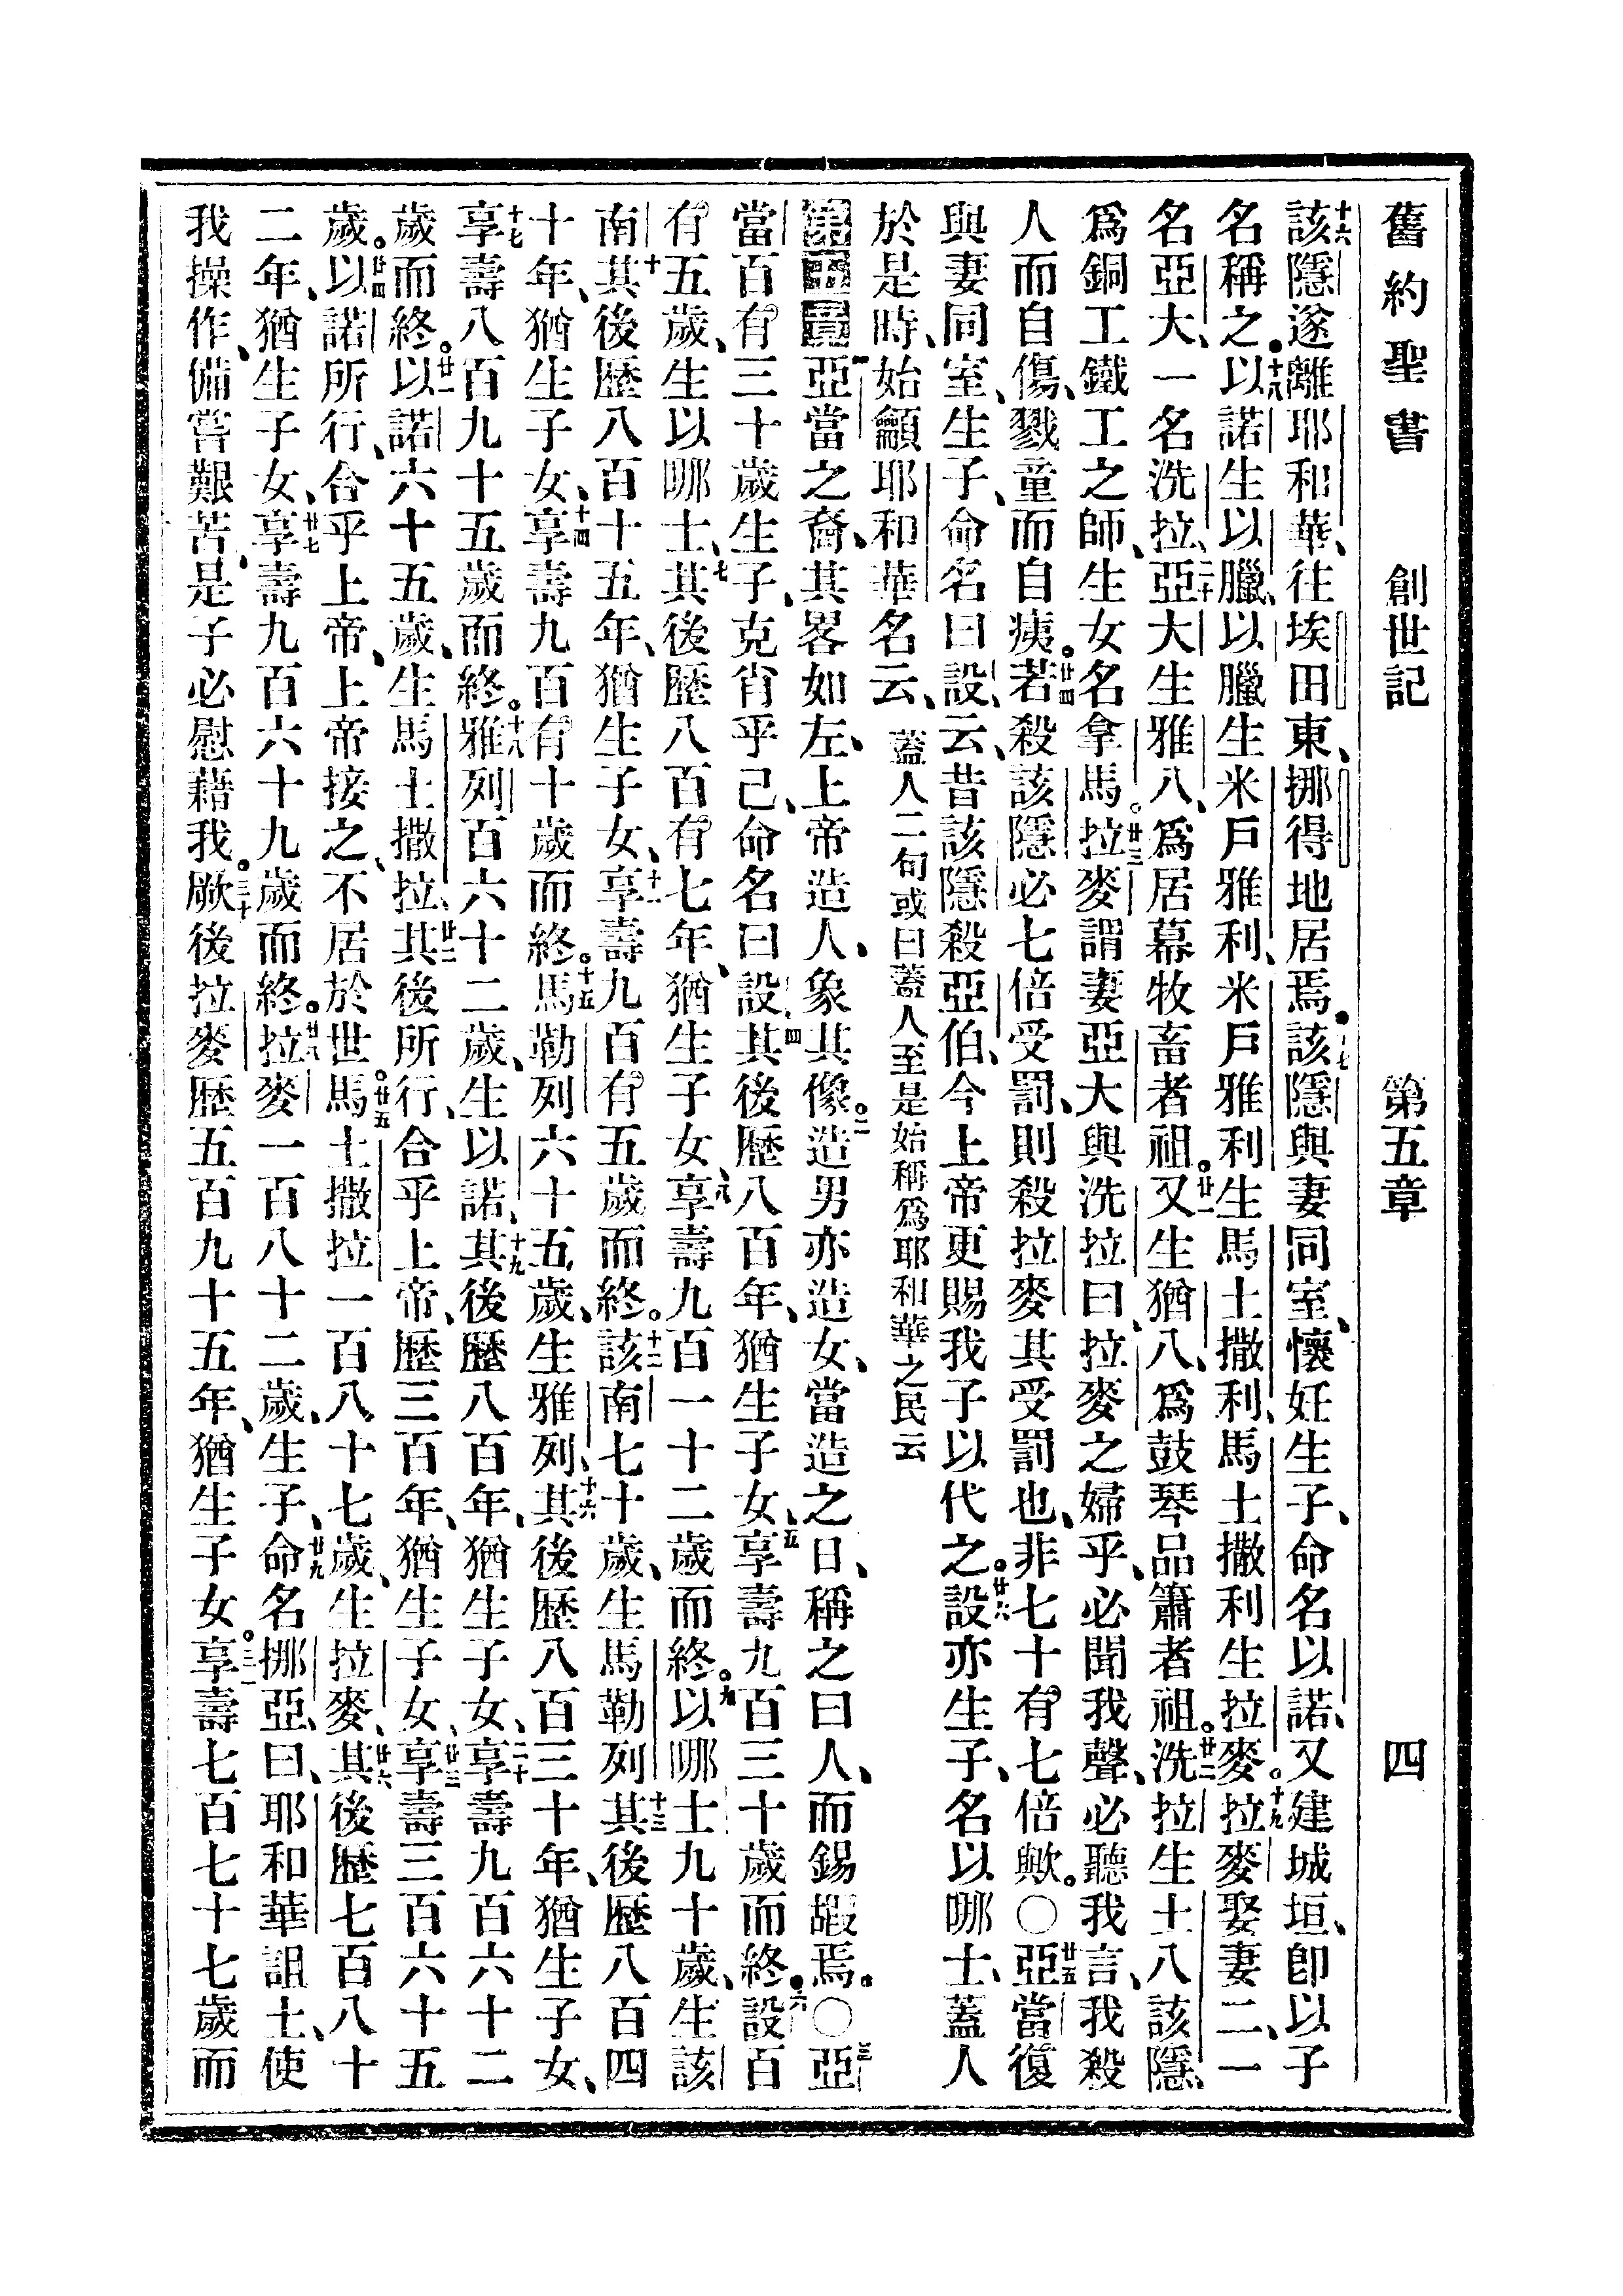 舊約聖書 創世記 第五章 四
十六該隱遂離耶和華、往埃田東、挪得地居焉。十七該隱與妻同室、懷妊生子、命名以諾、又建城垣、卽以子
名稱之。十八以諾生以臘、以臘生米戶雅利、米戶雅利生馬土撒利、馬土撒利生拉麥。十九拉麥娶妻二、一
名亞大、一名洗拉、二十亞大生雅八、爲居幕牧畜者祖。廿一又生猶八、爲鼓琴品簫者祖。廿二洗拉生土八該隱、
爲銅工鐵工之師、生女名拿馬。廿三拉麥謂妻亞大與洗拉曰、拉麥之婦乎、必聞我聲、必聽我言、我殺
人而自傷、戮童而自痍。廿四若殺該隱必七倍受罰、則殺拉麥其受罰也、非七十有七倍歟。〇廿五亞當復
與妻同室、生子、命名曰設、云、昔該隱殺亞伯、今上帝更賜我子以代之。廿六設亦生子、名以哪士、蓋人
於是時、始籲耶和華名云、蓋人二句或曰蓋人至是始稱爲耶和華之民云
第五章一亞當之裔、其畧如左、上帝造人、象其像。二造男亦造女、當造之日、稱之曰人、而錫嘏焉。〇三亞
當百有三十歲生子、克肖乎己、命名曰設、四其後歷八百年、猶生子女、五享壽九百三十歲而終。六設百
有五歲、生以哪士、七其後歷八百有七年、猶生子女、八享壽九百一十二歲而終。九以哪士九十歲、生該
南、十其後歷八百十五年、猶生子女、十一享壽九百有五歲而終。十二該南七十歲、生馬勒列、十三其後歷八百四
十年、猶生子女、十四享壽九百有十歲而終。十五馬勒列六十五歲、生雅列、十六其後歷八百三十年、猶生子女、
十七享壽八百九十五歲而終。十八雅列百六十二歲、生以諾、十九其後歷八百年、猶生子女、二十享壽九百六十二
歲而終。廿一以諾六十五歲、生馬土撒拉、廿二其後所行、合乎上帝、歷三百年、猶生子女、廿三享壽三百六十五
歲。廿四以諾所行、合乎上帝、上帝接之、不居於世。廿五馬土撒拉一百八十七歲、生拉麥、廿六其後歷七百八十
二年、猶生子女、廿七享壽九百六十九歲而終。廿八拉麥一百八十二歲、生子、廿九命名挪亞、曰、耶和華詛土、使
我操作、備嘗艱苦、是子必慰藉我。三十厥後拉麥歷五百九十五年、猶生子女。三一享壽七百七十七歲而